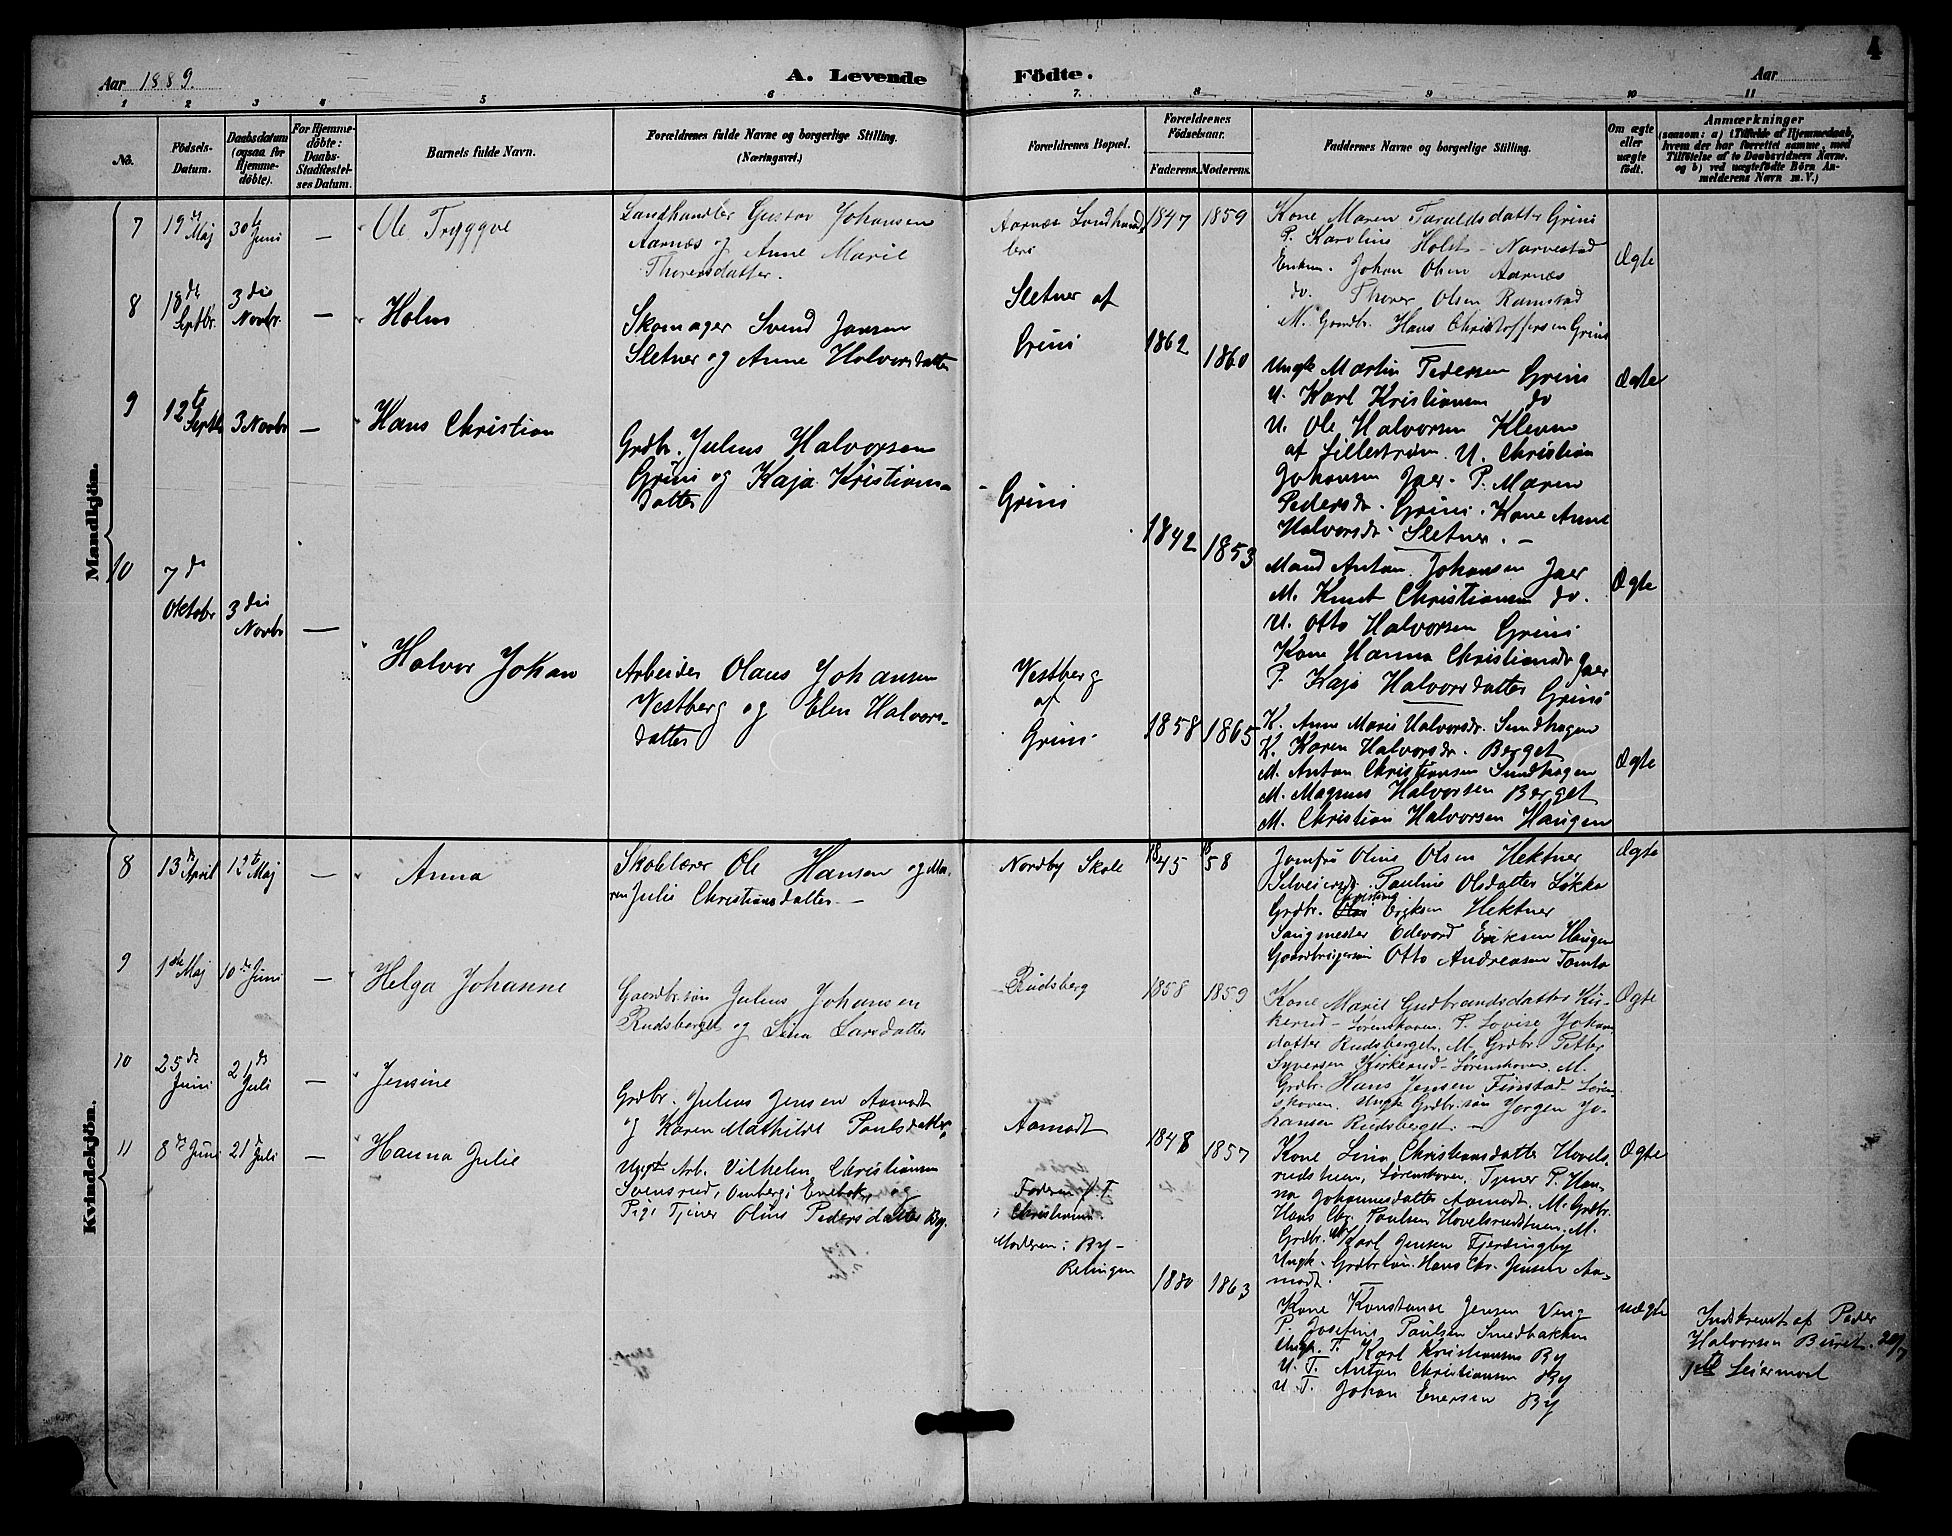 Aar 1889.
A. Levende
Födte.
Aar
4
1
2
3
4
5
6
7.
8
9
10
11
No.
Födsels-
Datum.
Daabsdatum
(ogsaa for
Hjemme-
döbte).
For Hjemme-
döbte:
Daabs-
Stadfæstel-
ses Datum.
Barnets fulde Navn.
Forældrenes fulde Navne og borgerlige Stilling.
(Næringsvei.)
Forældrenes Bopæl.
Forældrenes
Födselsaar.
Faderens.
Moderens.
Faddernes Navne og borgerlige Stilling.
Om ægte
eller
uægte
födt.
Anmærkninger
(saasom: a) i Tilfælde af Hjemmedaab,
hvem der har forrettet samme, med
Tilföielse af to Daabsvidners Navne.
og b) ved uægtefödte Börn An-
melderens Navn m.V.)
Mandkjön.
7
19de
Maj
30te
Juni
—
Ole Tryggve
Landhandler Gustav Johansen
Aarnæs og Anne Marie
Thorersdatter.
Aarnæs
1847
1859
Kone Maren Taraldsdatter Grini
P. Karoline Holst - Narvestad
Enkem. Johan Olsen Aarnæs
do. Thorer Olsen Ramstad
M. Gaardbr. Hans Christoffersen Grini
Ægte
8
18de
Septbr.
3die
Novbr.
—
Holm
Skomager Svend Jansen
Sletner og Anne Halvorsdatter
Sletner af
Grini
1862
1860
Ungk Martin Pedersen Grini
U. Karl Kristiansen do
U. Ole Halvorsen Kleven
af Lillestrøm. U. Christian
Johansen Jaer. P. Maren
Pedersdr. Grini. Kone Anne
Halvorsdr. Sletner. —
Ægte
9
12te
Septbr
3 Novbr
—
Hans Christian
Grdbr. Julius Halvorsen
Grini og Kaja Kristians-
datter
Grini
1842
1853
Mand Anton Johansen Jaer
M. Knut Christiansen do.
U. Otto Halvorsen Grini
Kone Hanna Christiansdr Jaer
P. Kaja Halvorsdatter Grini
Ægte
10
7de
Oktobr
3die
Novbr
—
Halvor Johan
Arbeider Olaus Johansen
Vestberg og Elen Halvors-
datter
Vestberg
af
Grini
1858
1865
K. Anne Marie Halvorsdr. Sundhagen
K. Karen Halvorsdr. Berget
M. Anton Christiansen Sundhagen
M. Magnus Halvorsen Berget
M. Christian Halvorsen Haugen
Ægte
Kvindekjön.
8
13de April
12te Maj
—
Anna
Skolelærer Ole Hansen og Ma-
ren Julie Christiansdatter. —
Nordby Skole
1845
1858
Jomfru Oline Olsen Hektner
Pauline Olsdatter Løkka
Grdbr. Eriksen Hektner
Saugmester Edevard Eriksen Haugen
Otto Andreasen Tomta
Ægte
9
1ste Maj
10de Juni
—
Helga Johanne
Gaardbr.søn Julius Johansen
Rudsberget og Lina Larsdatter
Rudsberg
1858
1859
Kone Marie Gudbrandsdatter Kir-
kerud - Lørenskoven. P. Lovise Johans-
datter Rudsberget. M. Grdbr. Petter
Syversen Kirkerud - Lørenskoven. M.
Grdbr. Hans Jensen Finstad - Løren-
skoven. Ungk Grdbr.søn Jørgen Jo-
hansen Rudsberget. —
Ægte
10
25de
Juni
21de
Juli
—
Jensine
Grdbr. Julius Jensen Aamodt
og Karen Mathilde Paulsdatter
Aamodt
1848
1857
Kone Lina Christiansdatter Hovels-
rudstuen, Lørenskoven. Tjener P. Han-
na Johannesdatter Aamodt. M. Grdbr.
Hans Chr. Paulsen Hovelsrudstuen. M.
Grdbr. Karl Jensen Fjerdingby
Ungk. Grdbr.søn Hans Chr. Jensen Aa-
modt.
Ægte
11
8de Juni
21de Juli
—
Hanna Julie
Ungk. Arb. Vilhelm Christiansen
Svensrud, Omberg i Enebak, og
Pige Tjener Oline Pedersdatter By.
Faderen p. T.
i Christiania.
Moderen: By -
Relingen
1860
1863
Kone Konstanse Jensen Veng
P. Josefine Paulsen Smedbakken
Ungk. T. Karl Kristiansen By
U. T. Anton Christiansen By
U. T. Johan Enersen By
uægte
Indskrevet af Peder
Halvorsen Buret. 20/7
1ste Leiermaal